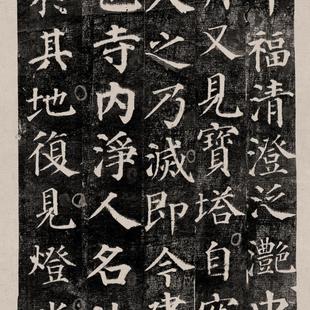 福清澄泛灩
又見寶塔自空
之乃滅即今建
也寺內淨人名
於其地復見燈